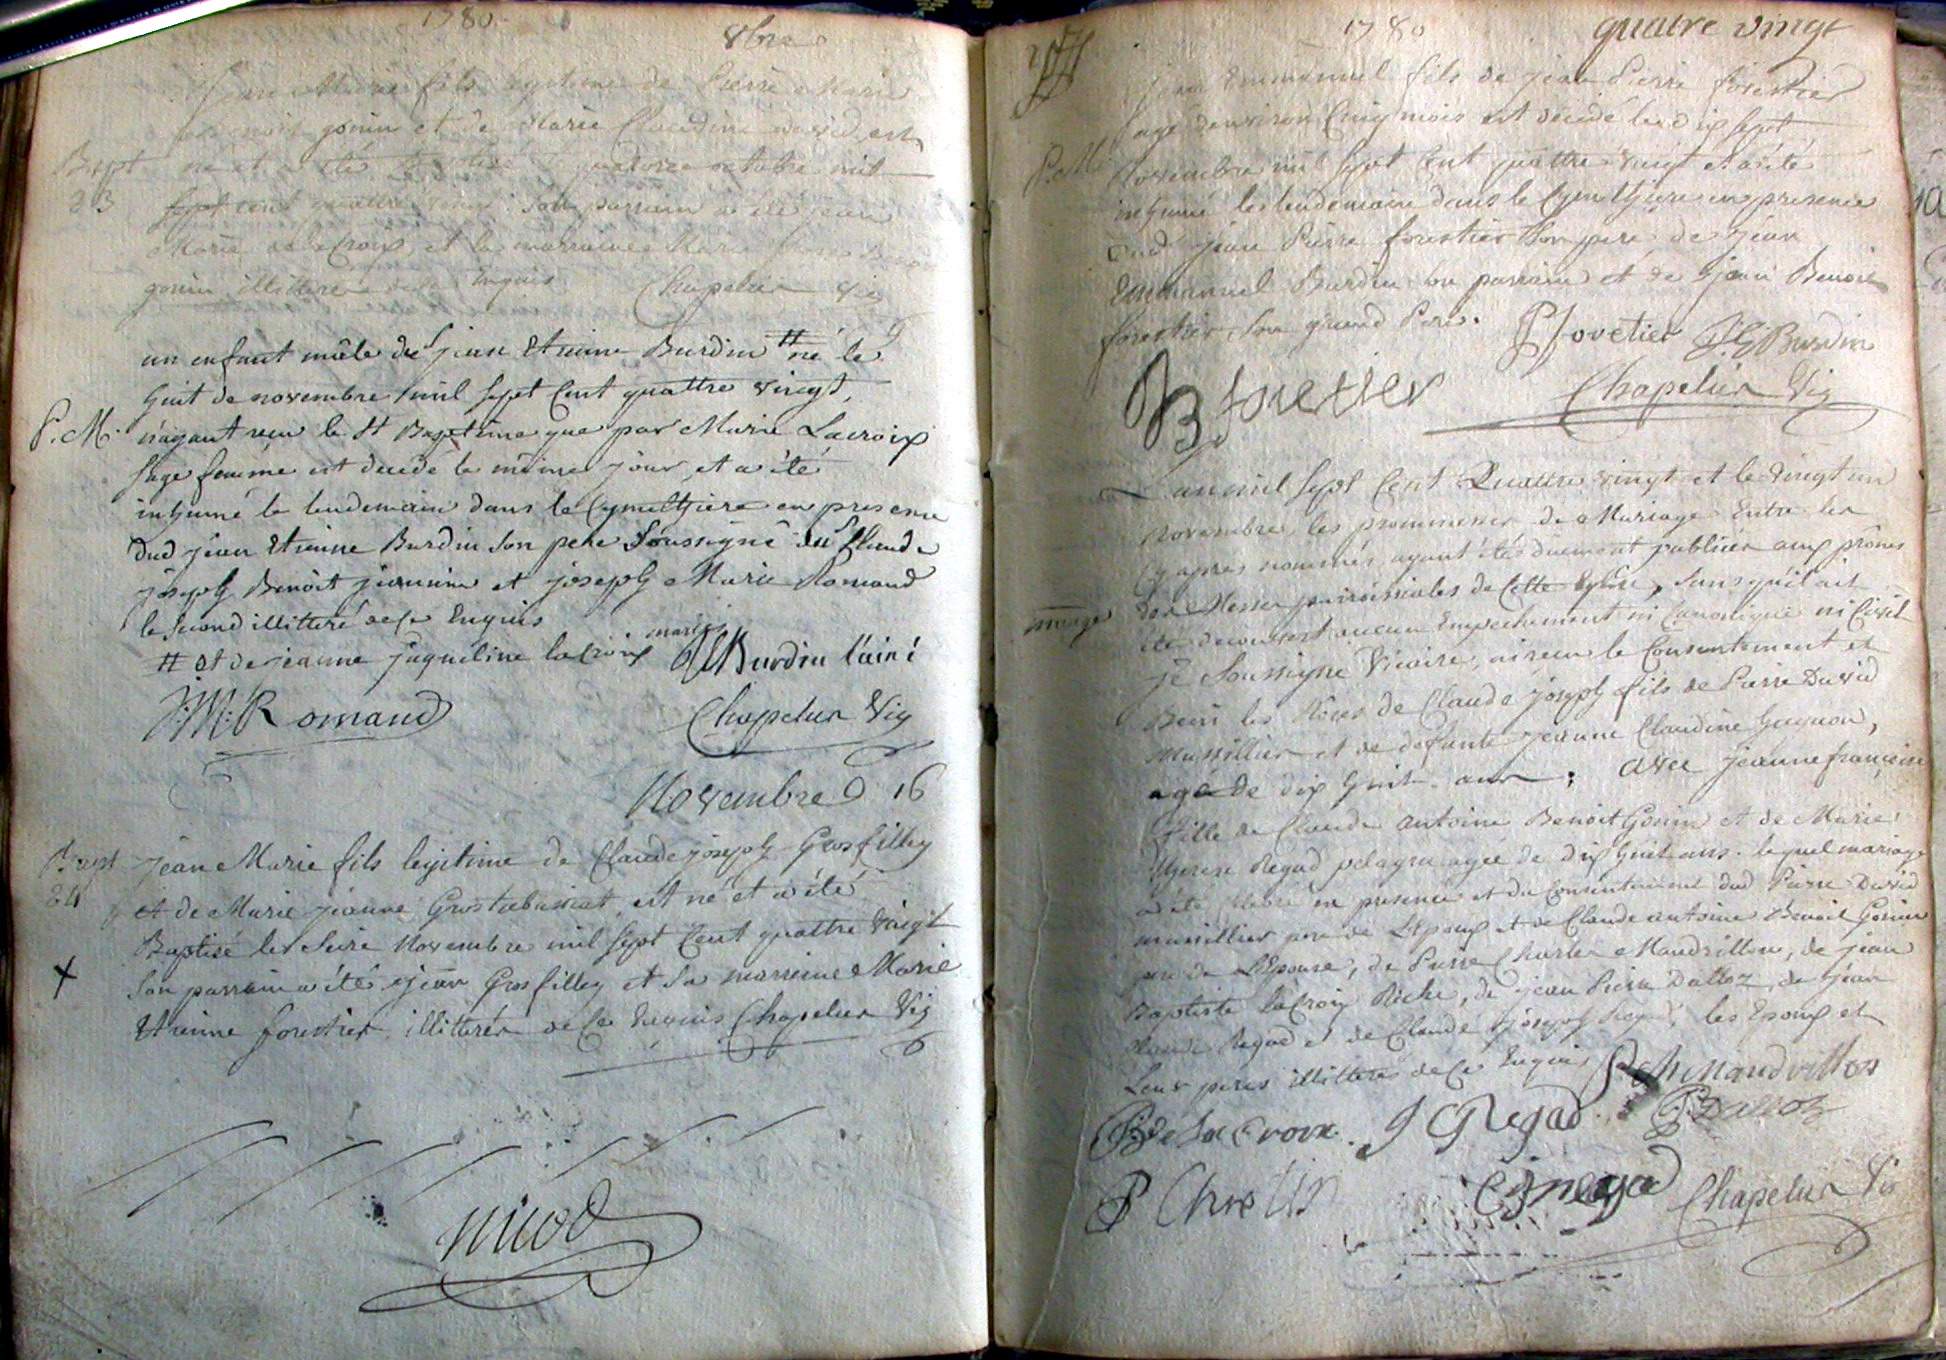 1780.
8bre
Jean Marie fils legitime de Pierre Marie
Benoit gonin et de Marie Claudine david est
Bapt né et a été Baptisé le quatorze octobre mil
23 sept cent quattre vingt son parrain a été jean
Marie delaCroix et la marraine Marie
gonin illitteré de ce Enquis Chapelier Vic
un enfant mâle de jean Etienne Burdin # né le
huit de novembre mil sept Cent quattre vingt,
P.M. n'ayant reçu le St Baptême que par Marie Lacroix
sage femme est decedé le même jour et a été
inhumé le lendemain dans le Cymethiere en presence
dud jean Etienne Burdin son pere soussigné de Claude
joseph Benoit jeannin et joseph Marie Romand
le second illitteré de ce Enquis
# et de jeanne jaqueline la Croix mariés Burdin l'ainé
J:M:Romand Chapelier Vic
Novembre 16
Bapt jean Marie fils legitime de Claude joseph Grosfilley
24 et de Marie jeanne est né et a été
Baptisé le seize Novembre mil sept Cent quattre vingt
son parrain a été jean Grosfilley et sa marraine Marie
Etienne forestier illitterés de ce Enquis Chapelier Vic
nicod
1780
quatre vingt
jean Emmanuel fils de jean Pierre forestier
agé denviron Cinq mois est décédé le dix sept
P.M. Novembre mil sept Cent quattre vingt et a été
inhumé le lendemain dans le Cymethiere en presence
dud jean Pierre forestier son pere de jean
Emmanuel Burdin son parrain et de jean Benoit
forestier son grand Pere. P fovetier J:E Burdin
JB foretier Chapelier Vic
Lan mil sept Cent Quattre vingt et le vingt un
Novembre, les prommesses de Mariage Entre les
Cy apres nommés, ayant étés duement publiées aux prônes
des Messes paroissiales de Cette Eglise, sans qu'il ait
mariage été decouvert aucun Empechement ni Canonique ni Civil
je soussigné Vicaire, ai reçu le Consentement et
Beni les Nôces de Claude joseph fils de Pierre David
Mussillier et de defunte jeanne Claudine Gagnon,
agé de dix huit ans; avec jeanne françoise
fille de Claude antoine Benoit Gonin et de Marie
Therese Regad pelagru agée de dix huit ans. lequel mariage
a été Celebré en presence et du Consentement dud Pierre David
mussillier pere de L'Epoux et de Claude antoine Benoit Gonin
pere de L'Epouse, de Pierre Charles Mandrillon, de jean
Baptiste laCroix Roche, de jean Pierre Dalloz, de jean
Claude Regad et de Claude joseph Regad, les Epoux et
Leurs peres illitterés de ce Enquis P Ch Mandrillon
JB de La Croix. J C Regad JP Dalloz
C j regad Chapelier Vic